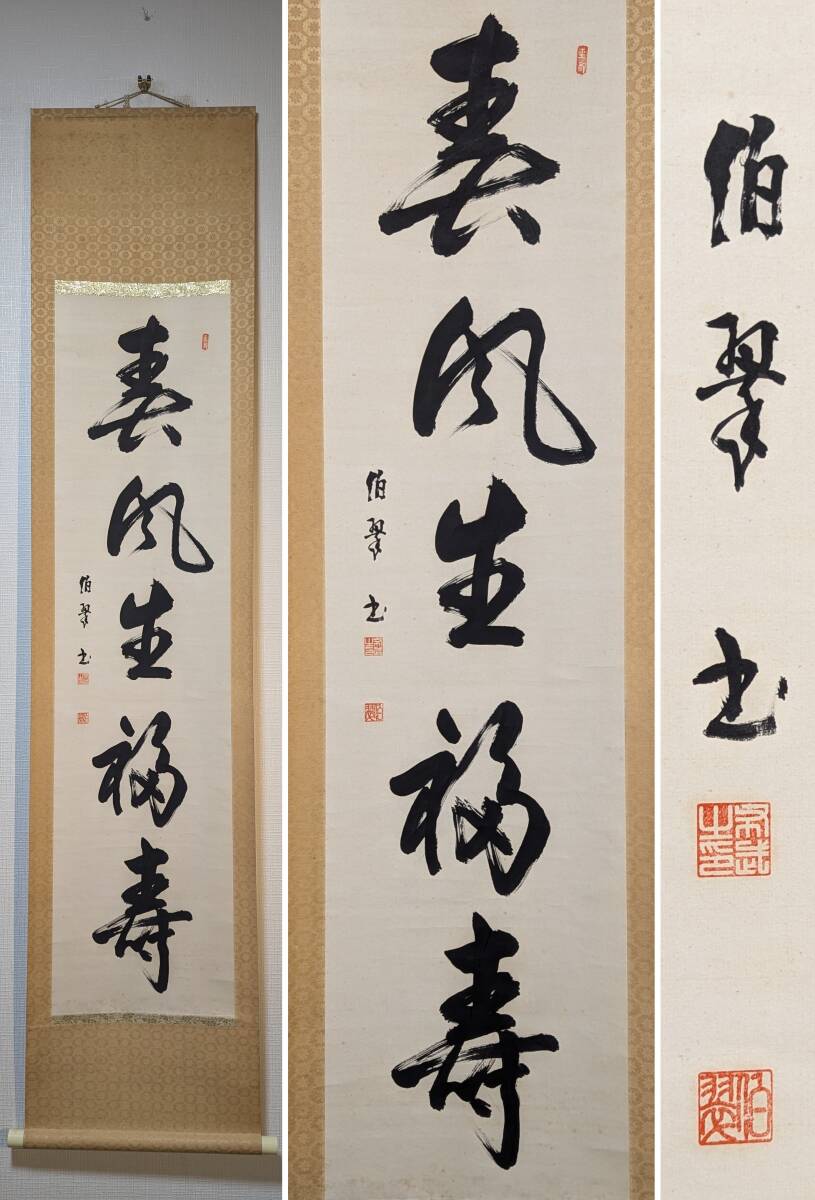 春風生福寿
伯翠書
春風生福寿
伯翠書
伯翠書
伯翠